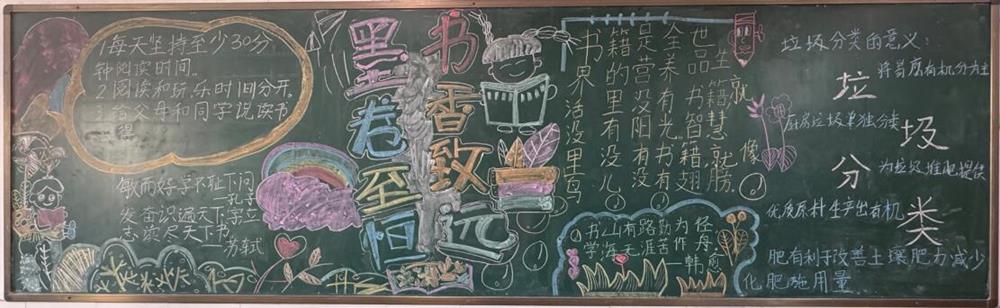 1.每天坚持至少30分
钟阅读时间.
2.阅读和玩乐时间分开.
3.给父母和同学说读书
得.
敏而好学不耻下问
—孔子
发奋识遍天下字立
志读尽天下书.
—苏轼
书香致远
墨卷至恒
书籍是全世
界的营养品生
活里没有书籍就
没有阳光智慧
里没有书籍就像
鸟儿没有翅膀
书山有路勤为径
学海无涯苦作舟
—韩愈
垃圾分类的意义:
垃圾分类
将易腐有机分为主
厨房垃圾单独分类
为垃圾堆肥提供
优质原料生产出有机
肥有利于改善土壤肥力减少
化肥施用量